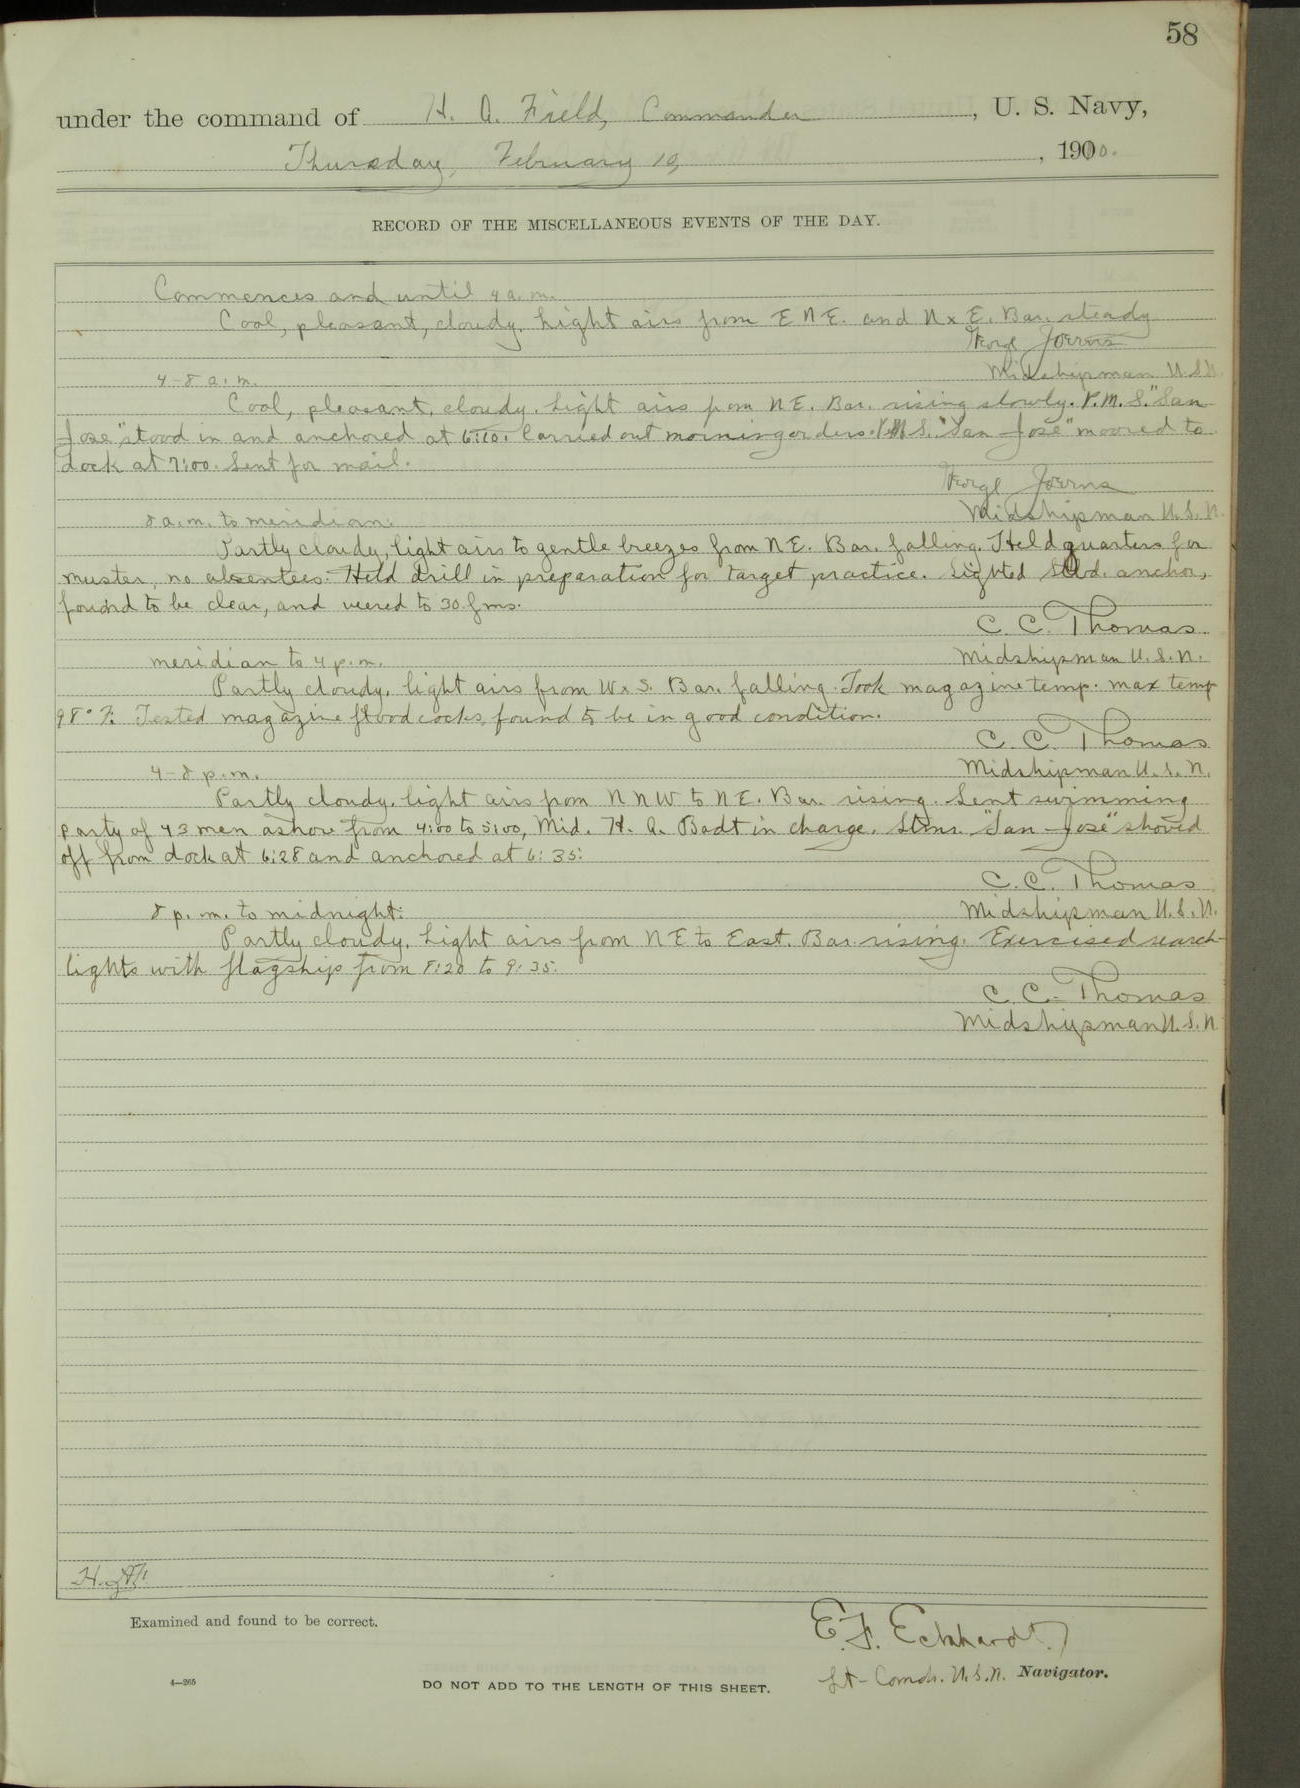 58
under the command of H. A. Field, Commander, U. S. Navy,
Thursday, February 10, 1900.
RECORD OF THE MISCELLANEOUS EVENTS OF THE DAY.
Commences and until 4 a.m.
Cool, pleasant, cloudy. Light airs from E N E. and N x E. Bar. steady
George Joerns
Midshipman U.S.N.
4-8 a.m.
Cool, pleasant, cloudy. Light airs from N E. Bar. rising slowly. P.M.S. "San
Jose" stood in and anchored at 6:10. Carried out morning orders. P.M.S. "San Jose" moored to
dock at 7:00. Sent for mail.
George Joerns
Midshipman U.S.N.
8 a.m. to meridian:
Partly cloudy, light airs to gentle breezes from N E. Bar. falling. Held quarters for
muster, no absentees. Held drill in preparation for target practice. Sighted Stbd. anchor,
found to be clear, and veered to 30 fms.
C. C. Thomas
Midshipman U.S.N.
meridian to 4 p.m.
Partly cloudy, light airs from W x S. Bar. falling. Took magazine temp. max temp
98° F. Tested magazine flood cocks, found to be in good condition.
C. C. Thomas
Midshipman U.S.N.
4-8 p.m.
Partly cloudy, light airs from N N W to N E. Bar. rising. Sent swimming
party of 43 men ashore from 4:00 to 5:00, Mid. H. A. Badt in charge. Stmr. "San Jose" shoved
off from dock at 6:28 and anchored at 6:35.
C. C. Thomas
Midshipman U.S.N.
8 p.m. to midnight:
Partly cloudy. Light airs from N E to East. Bar. rising. Exercised search-
lights with flagship from 8:20 to 9:35.
C. C. Thomas
Midshipman U.S.N.
Examined and found to be correct.
E. F. Eckhardt
Lt-Comdr. U.S.N. Navigator.
4—265
DO NOT ADD TO THE LENGTH OF THIS SHEET.